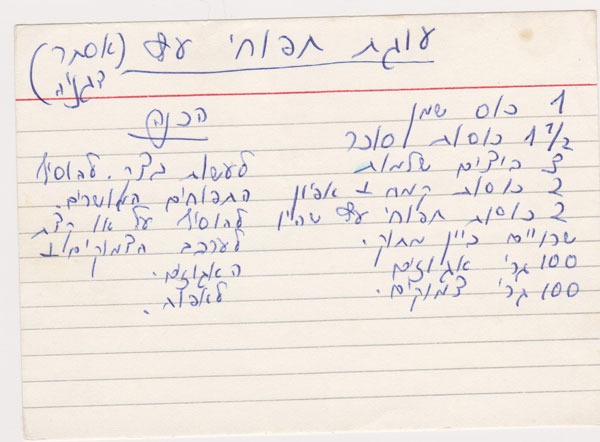 עוגת תפוחי עץ (אסתר
דגניה)
1 כוס שמן
1 1/2 כוסות סוכר
3 ביצים שלמות
2 כוסות קמח + אפיון
2 כוסות תפוחי עץ שהיו
שרויים ביין מתוק.
100 גר' אגוזים
100 גר' צמוקים.
הכנה
לעשות בצק. להוסיף
התפוחים המושרים.
להוסיף קצת
לערבב הצמוקים +
האגוזים.
לאפות.